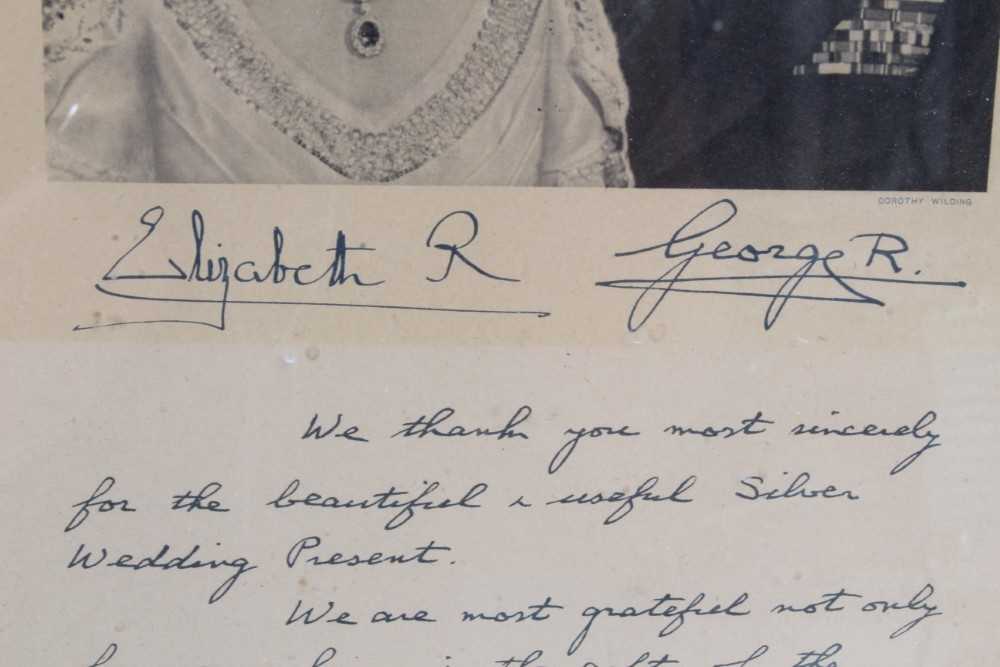 DOROTHY WILDING
Elizabeth R George R.
We thank you most sincerely
for the beautiful & useful Silver
Wedding Present.
We are most grateful not only
the of the